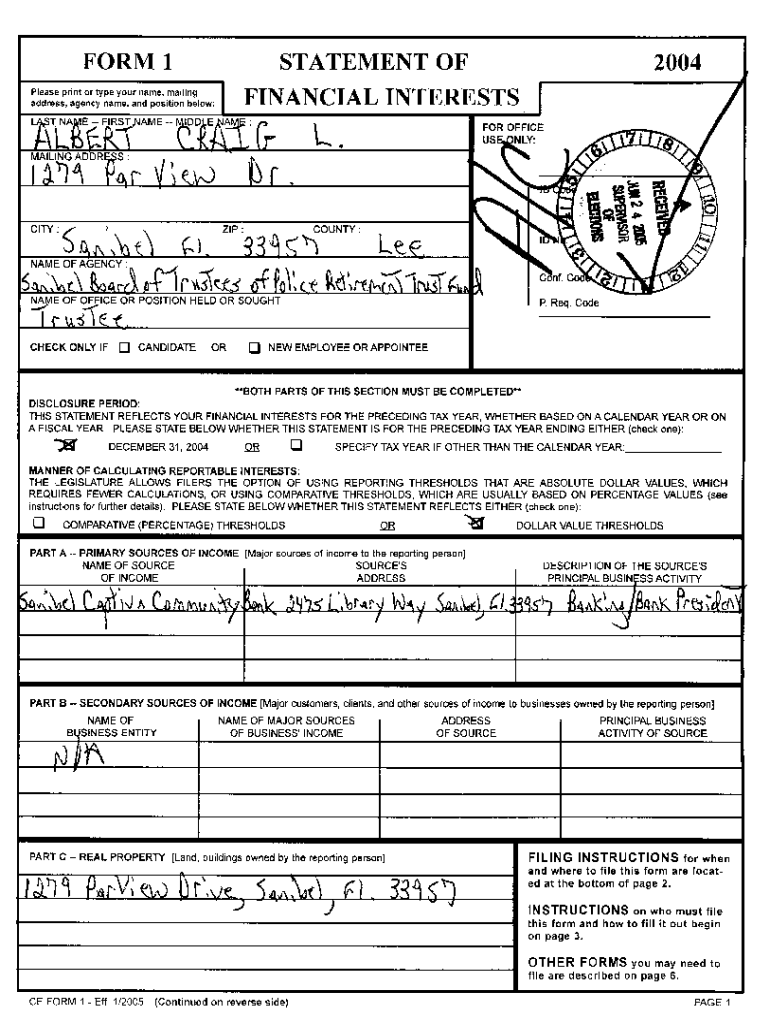 FORM 1
STATEMENT OF
FINANCIAL INTERESTS
2004
Please print or type your name, mailing
address, agency name, and position below:
LAST NAME -- FIRST NAME -- MIDDLE NAME :
ALBERT CRAIG L.
MAILING ADDRESS :
1279 Par View Dr.
CITY : ZIP : COUNTY :
Sanibel Fl. 33957 Lee
NAME OF AGENCY :
Sanibel Board of Trustees of Police Retirement Trust Fund
NAME OF OFFICE OR POSITION HELD OR SOUGHT
Trustee
CHECK ONLY IF ☐ CANDIDATE OR ☐ NEW EMPLOYEE OR APPOINTEE
FOR OFFICE
USE ONLY:
ID Code
ID No
Conf. Code
P. Req. Code
RECEIVED
JUN 24 2005
SUPERVISOR
OF
ELECTIONS
**BOTH PARTS OF THIS SECTION MUST BE COMPLETED**
DISCLOSURE PERIOD:
THIS STATEMENT REFLECTS YOUR FINANCIAL INTERESTS FOR THE PRECEDING TAX YEAR, WHETHER BASED ON A CALENDAR YEAR OR ON
A FISCAL YEAR. PLEASE STATE BELOW WHETHER THIS STATEMENT IS FOR THE PRECEDING TAX YEAR ENDING EITHER (check one):
☒ DECEMBER 31, 2004 OR ☐ SPECIFY TAX YEAR IF OTHER THAN THE CALENDAR YEAR:
MANNER OF CALCULATING REPORTABLE INTERESTS:
THE LEGISLATURE ALLOWS FILERS THE OPTION OF USING REPORTING THRESHOLDS THAT ARE ABSOLUTE DOLLAR VALUES, WHICH
REQUIRES FEWER CALCULATIONS, OR USING COMPARATIVE THRESHOLDS, WHICH ARE USUALLY BASED ON PERCENTAGE VALUES (see
instructions for further details). PLEASE STATE BELOW WHETHER THIS STATEMENT REFLECTS EITHER (check one):
☐ COMPARATIVE (PERCENTAGE) THRESHOLDS OR ☒ DOLLAR VALUE THRESHOLDS
PART A -- PRIMARY SOURCES OF INCOME [Major sources of income to the reporting person]
NAME OF SOURCE SOURCE'S DESCRIPTION OF THE SOURCE'S
OF INCOME ADDRESS PRINCIPAL BUSINESS ACTIVITY
Sanibel Captiva Community Bank 2475 Library Way Sanibel, Fl. 33957 Banking/Bank President
PART B -- SECONDARY SOURCES OF INCOME [Major customers, clients, and other sources of income to businesses owned by the reporting person]
NAME OF NAME OF MAJOR SOURCES ADDRESS PRINCIPAL BUSINESS
BUSINESS ENTITY OF BUSINESS' INCOME OF SOURCE ACTIVITY OF SOURCE
N/A
PART C -- REAL PROPERTY [Land, buildings owned by the reporting person]
1279 ParView Drive, Sanibel, Fl. 33957
FILING INSTRUCTIONS for when
and where to file this form are locat-
ed at the bottom of page 2.
INSTRUCTIONS on who must file
this form and how to fill it out begin
on page 3.
OTHER FORMS you may need to
file are described on page 6.
CE FORM 1 - Eff. 1/2005 (Continued on reverse side) PAGE 1